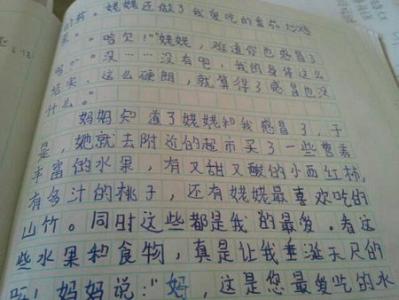 姥姥还做了我爱吃的
。哈欠!"姥姥,难道你也感冒了
吗?"没……没有吧,我的身体这么
结实,这么硬朗,就算得了感冒也没
什么。"
妈妈知道了姥姥和我感冒了,于
是,她就去附近的超市买了一些营养
丰富的水果,有又甜又酸的小西红柿,
有多汁的桃子,还有姥姥最喜欢吃的
山竹。同时这些都是我的最爱。看这
些水果和食物,真是让我垂涎天尺的
妈妈说:"妈,这是您最爱吃的水